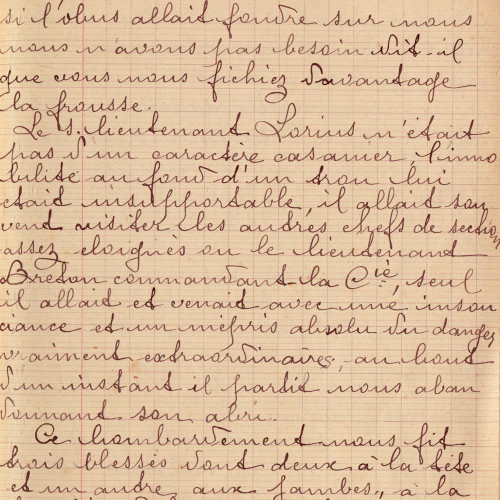 si l'obus allait fondre sur nous
nous n'avons pas besoin dit-il
que vous nous fichiez davantage
la frousse.
Le s. lieutenant Lorius n'était
pas d'un caractère casanier, l'immo
bilité au fond d'un trou lui
était insupportable, il allait sou
vent visiter les autres chefs de section
assez éloignés ou le lieutenant
Breton commandant la Cie, seul
il allait et venait avec une insou
ciance et un mépris absolu du danger
vraiment extraordinaires, au bout
d'un instant il partit nous aban
donnant son abri.
Ce bombardement nous fit
trois blessés dont deux à la tête
et un autre aux jambes, à la